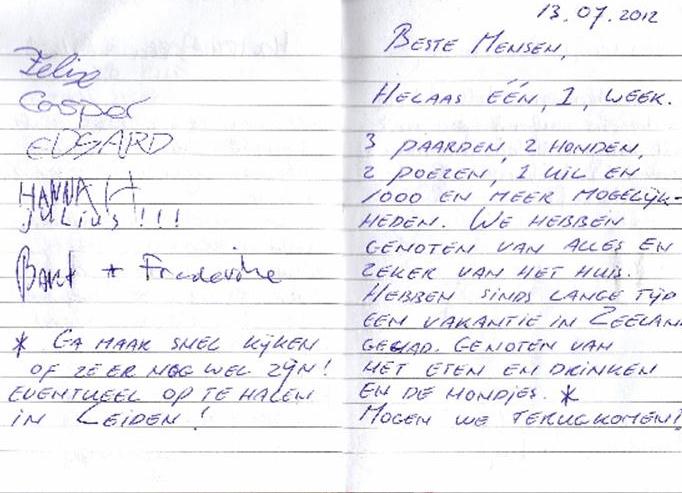 Felix
Casper
EDGARD
HANNAH
Julius!!!
Bart + Frederike
* GA MAAR SNEL KIJKEN
OF ZE ER NOG WEL ZIJN!
EVENTUEEL OP TE HALEN
IN LEIDEN!
13.07.2012
BESTE MENSEN,
HELAAS ÉÉN, 1, WEEK.
3 PAARDEN, 2 HONDEN,
2 POEZEN, 1 UIL EN
1000 EN MEER MOGELIJK-
HEDEN. WE HEBBEN
GENOTEN VAN ALLES EN
ZEKER VAN HET HUIS.
HEBBEN SINDS LANGE TIJD
EEN VAKANTIE IN ZEELAN
GEHAD. GENOTEN VAN
HET ETEN EN DRINKEN
EN DE HONDJES. *
MOGEN WE TERUGKOMEN!